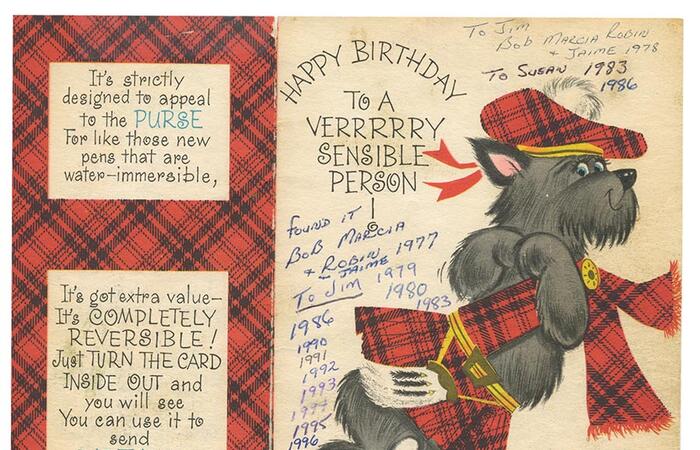 It's strictly
designed to appeal
to the PURSE
For like those new
pens that are
water-immersible,
It's got extra value—
It's COMPLETELY
REVERSIBLE!
Just TURN THE CARD
INSIDE OUT and
you will see
You can use it to
send
HAPPY BIRTHDAY
TO A
VERRRRRY
SENSIBLE
PERSON
!
To Jim
Bob Marcia Robin
& Jaime 1978
To Susan 1983
1986
found it
Bob Marcia
& Robin 1977
& Jaime
To Jim 1979
1980
1983
1986
1990
1991
1992
1993
1994
1995
1996